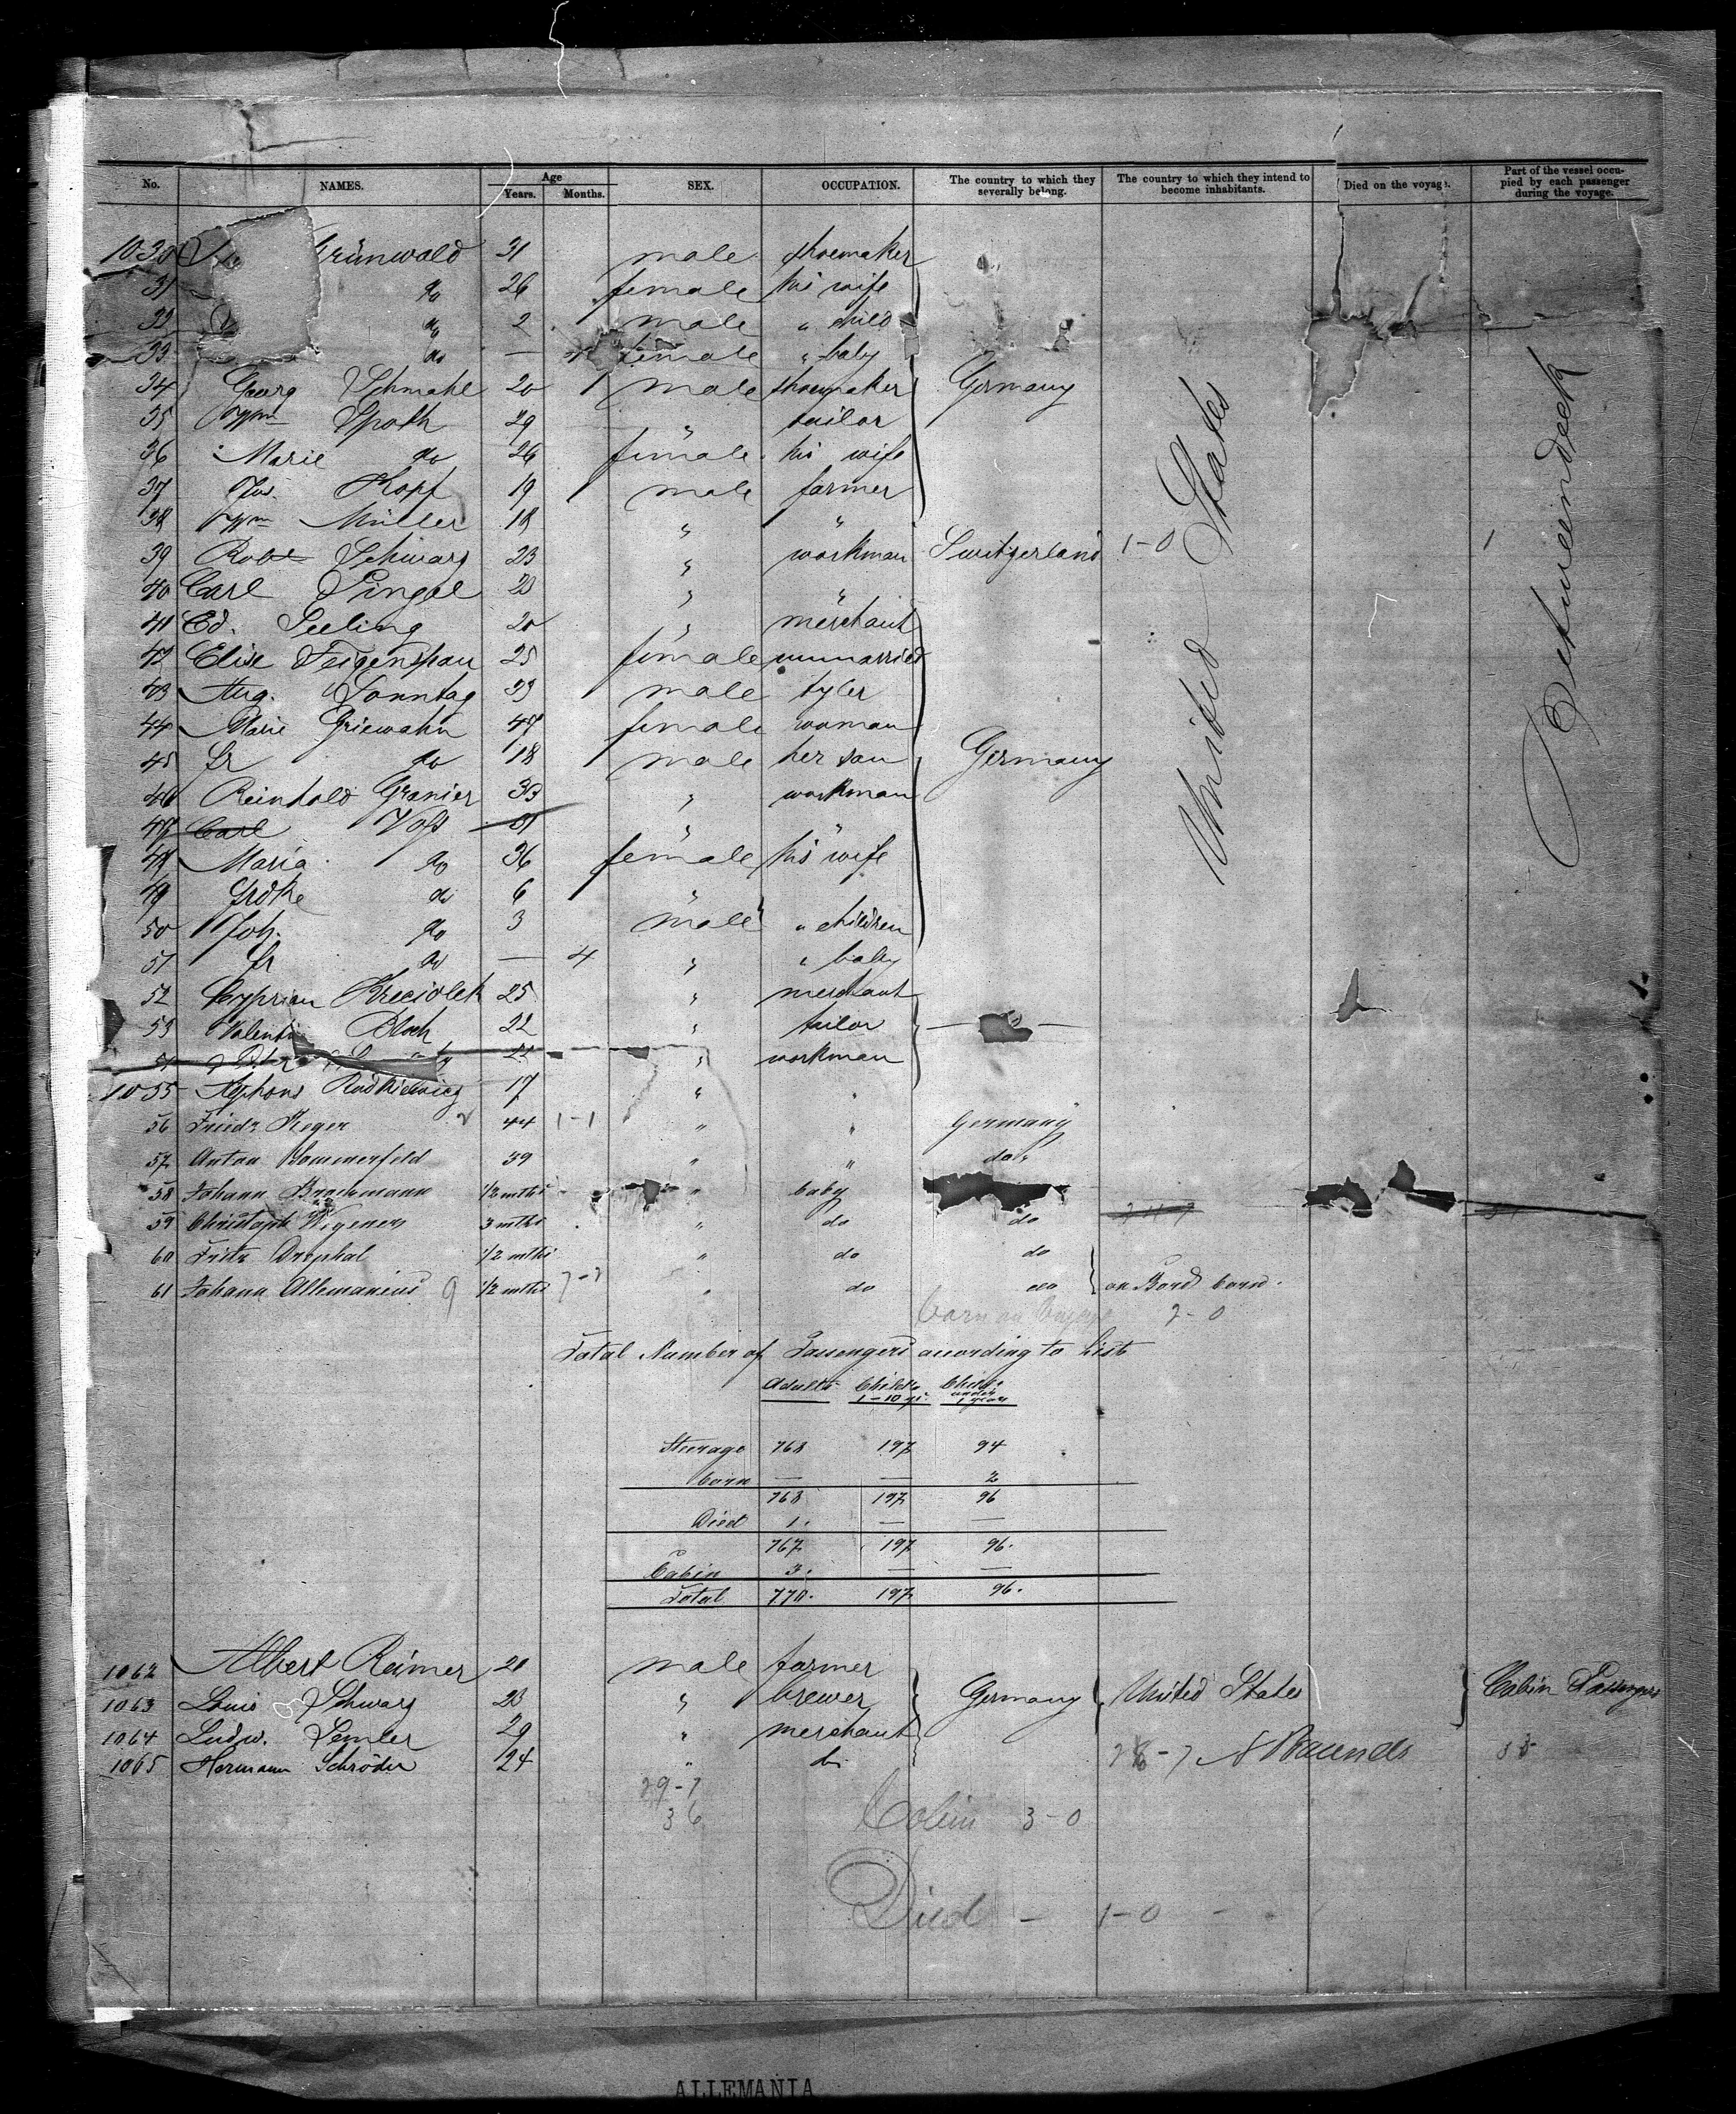 No. NAMES. Age Years. Months. SEX. OCCUPATION. The country to which they severally belong. The country to which they intend to become inhabitants. Died on the voyage. Part of the vessel occupied by each passenger during the voyage.
1030 Grünwald 31 male shoemaker
31 do 26 female his wife
32 do 2 male " child
33 do — female " baby
34 Georg Schmahl 20 male shoemaker Germany
35 Wm Spoth 29 " tailor
36 Marie do 26 female his wife
37 Jos. Kopf 19 male farmer
38 Wm Müller 18 " "
39 Robt Schwarz 23 " workman Switzerland 1-0 1
40 Carl 23 " "
41 Ed. Seeling 20 " merchant
42 Elise Feigenspan 25 female unmarried
43 Aug. Sonntag 23 male tyler
44 Marie Griewahn 47 female woman
45 Fr do 18 male her son Germany
46 Reinhold Granier 33 " workman
47 Carl Voss 31 " "
48 Maria do 36 female his wife
49 do 6 "
50 Joh. do 3 male " children
51 Fr do — 4 " " baby
52 Cyprian Kreciolek 25 " merchant
53 Valentin Bloch 22 " tailor
54 22 " workman
1055 Alphons Radkiewicz 17 " "
56 Friedr. Keger 44 1-1 " " Germany
57 Anton Sommerfeld 39 " " do
58 Johann Brockmann 1/2 mths " baby
59 Christoph Wegener 3 mths " do do
60 Fritz Drephal 1/2 mths " do do
61 Johann Allemanius 9 1/2 mths 7-7 " do do on Bord born.
born on voyage 2-0
United States
Betweendeck
Total Number of Passengers according to List
Adults Childr. 1-10 ys. Childr. under 1 year
Steerage 768 197 94
born — — 2
768 197 96
Died 1. — —
767 197 96.
Cabin 3. — —
Total 770. 197 96.
1062 Albert Reimer 20 male farmer
1063 Louis Schwarz 23 " brewer Germany United States Cabin Passengers
1064 Ludw. Semler 29 " merchant
1065 Hermann Schröder 24 " do
29-7
36
Cabin 3-0
Died - 1-0 -
ALLEMANIA